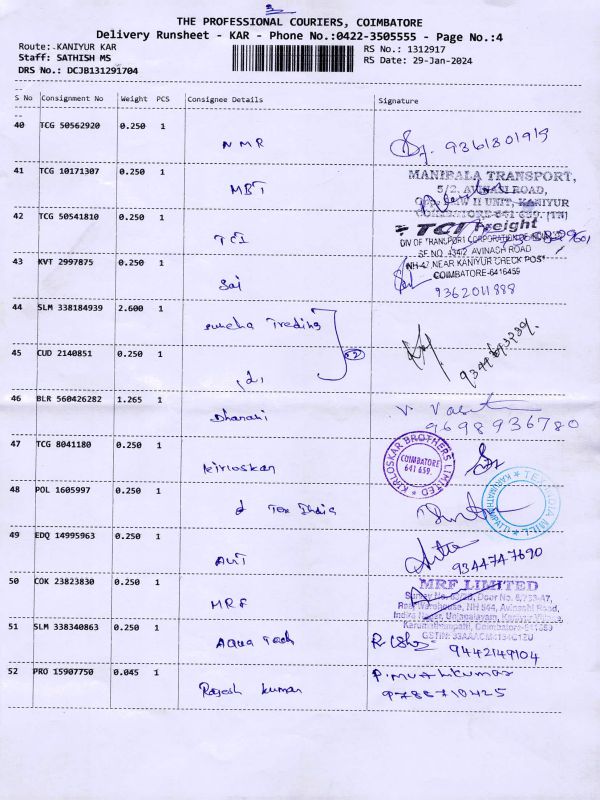 3
THE PROFESSIONAL COURIERS, COIMBATORE
Delivery Runsheet - KAR - Phone No.:0422-3505555 - Page No.:4
Route: KANIYUR KAR
RS No.: 1312917
Staff: SATHISH MS
RS Date: 29-Jan-2024
DRS No.: DCJB131291704
S No Consignment No Weight PCS Consignee Details Signature
40 TCG 50562920 0.250 1
NMR
9361301915
41 TCG 10171307 0.250 1
MBT
MANIBALA TRANSPORT,
5/2, AVINASI ROAD,
UNIT, KANIYUR
COIMBATORE-641 659. (TN)
42 TCG 50541810 0.250 1
TCI
TCI Freight
DIV OF TRANSPORT CORPORATION OF
SF NO. 434/2, AVINASH ROAD
NH-47, NEAR KANIYUR CHECK POST
COIMBATORE-6416459
43 KVT 2997875 0.250 1
Sai
9362011888
44 SLM 338184939 2.600 1
Trading
2
45 CUD 2140851 0.250 1
46 BLR 560426282 1.265 1
Dharani
9698936780
47 TCG 8041180 0.250 1
Kirloskar
KIRLOSKAR BROTHERS LIMITED
COIMBATORE
641 659.
48 POL 1605997 0.250 1
49 EDQ 14995963 0.250 1
9344747690
50 COK 23823830 0.250 1
MRF
MRF LIMITED
Door No. 6/753-47,
Rear Warehouse, NH 544, Avinashi Road,
51 SLM 338340863 0.250 1
Aqua Tech
9442149104
52 PRO 15907750 0.045 1
Rajesh kumar
P. Muthukumar
9788710425